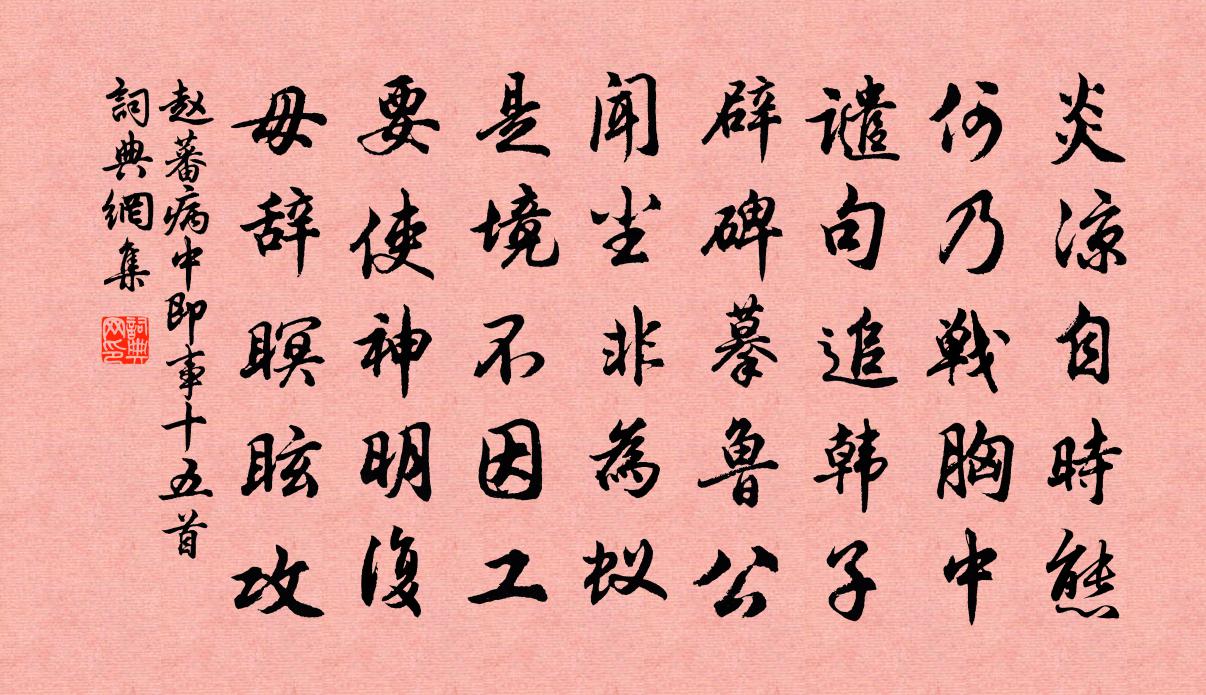 炎涼自時態
何乃戦胸中
譴句追韩子
辟碑摹鲁公
聞尘非為蚁
是境不因工
要使神明復
毋辞瞑眩攻
赵蕃病中即事十五首
詞典網集
詞典网印